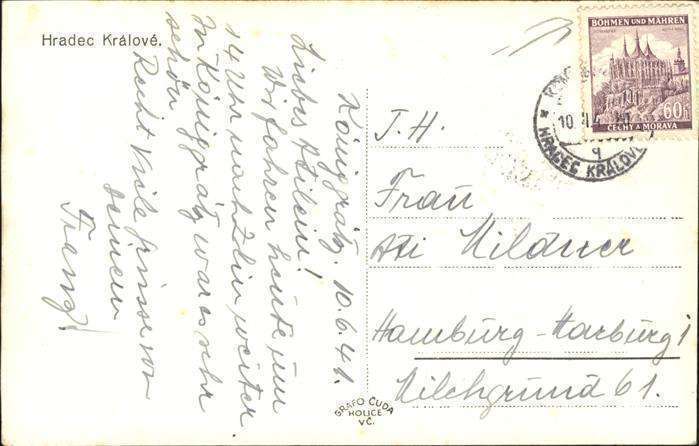 Hradec Králové.
Königgrätz. 10.6.41.
Liebes Atilein!
Wir fahren heute um
14 Uhr nach Zlin weiter.
In Königgrätz war es sehr
schön
Recht viele Grüsse von
deinem
Franz!
BÖHMEN UND MÄHREN
60
ČECHY A MORAVA
HRADEC KRÁLOVÉ
T.H.
Frau
Ati Mildner
Hamburg-Harburg 1
Milchgrund 61.
GRAFO ČUDA
HOLICE
VČ.